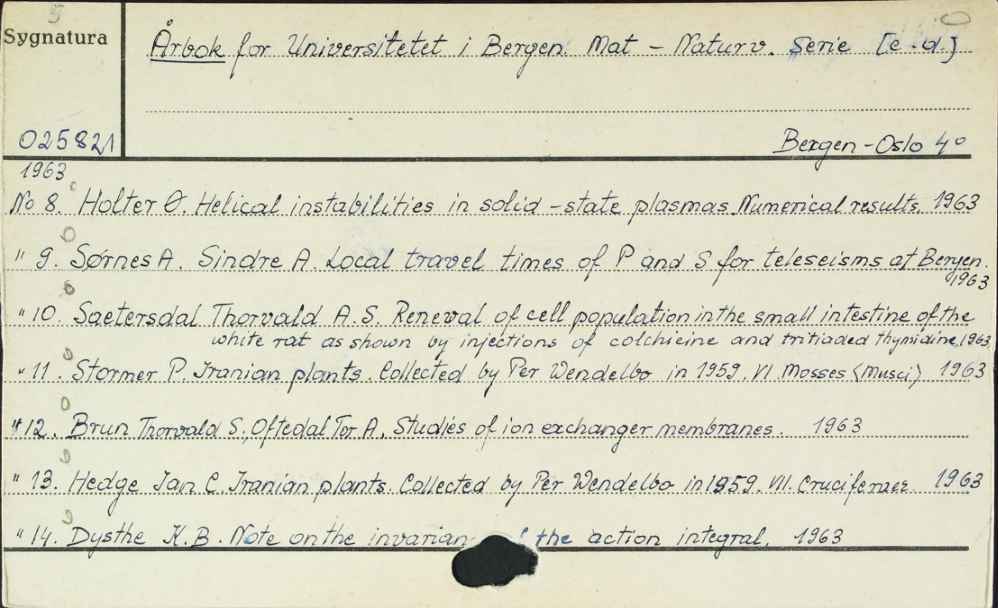 5
Sygnatura
Årbok for Universitetet i Bergen. Mat - Naturv. Serie [c.d.]
025821
Bergen - Oslo 4°
1963
No 8. Holter Ø. Helical instabilities in solid - state plasmas Numerical results. 1963
" 9. Sørnes A. Sindre A. Local travel times of P and S for teleseisms at Bergen.
1963
" 10. Saetersdal Thorvald A.S. Renewal of cell population in the small intestine of the
white rat as shown by injections of colchicine and tritiaded thymidine. 1963
" 11. Stormer P. Iranian plants. Collected by Per Wendelbo in 1959. VI Mosses (Musci) 1963
" 12. Brun Thorvald S., Oftedal Tor A. Studies of ion exchanger membranes. 1963
" 13. Hedge Ian C. Iranian plants. Collected by Per Wendelbo in 1959. VII. Cruciferae 1963
" 14. Dysthe K.B. Note on the invarian the action integral. 1963